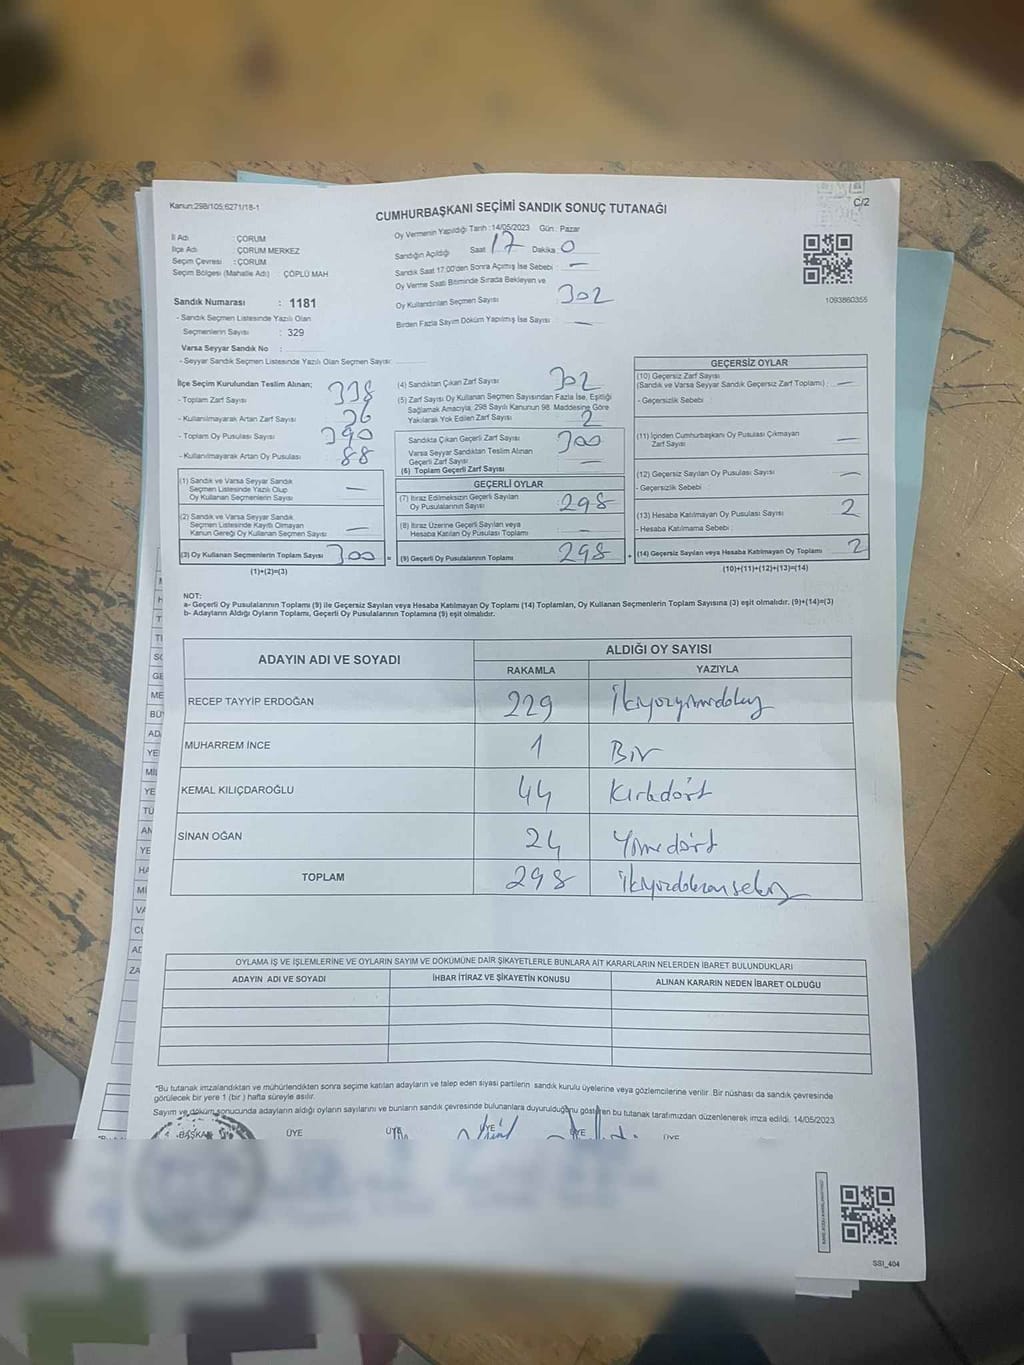 Kanun:298/105;6271/18-1
CUMHURBAŞKANI SEÇİMİ SANDIK SONUÇ TUTANAĞI
C/2
İl Adı : ÇORUM
İlçe Adı : ÇORUM MERKEZ
Seçim Çevresi : ÇORUM
Seçim Bölgesi (Mahalle Adı) ÇÖPLÜ MAH
Oy Vermenin Yapıldığı Tarih : 14/05/2023 Gün : Pazar
Sandığın Açıldığı Saat 17 Dakika 0
Sandık Saat 17:00'den Sonra Açılmış İse Sebebi : —
Oy Verme Saati Bitiminde Sırada Bekleyen ve
Oy Kullandırılan Seçmen Sayısı : 302
Birden Fazla Sayım Döküm Yapılmış İse Sayısı : —
1093860355
Sandık Numarası : 1181
- Sandık Seçmen Listesinde Yazılı Olan
Seçmenlerin Sayısı : 329
Varsa Seyyar Sandık No :
- Seyyar Sandık Seçmen Listesinde Yazılı Olan Seçmen Sayısı:
İlçe Seçim Kurulundan Teslim Alınan;
- Toplam Zarf Sayısı : 338
- Kullanılmayarak Artan Zarf Sayısı : 36
- Toplam Oy Pusulası Sayısı : 390
- Kullanılmayarak Artan Oy Pusulası : 88
(1) Sandık ve Varsa Seyyar Sandık
Seçmen Listesinde Yazılı Olup
Oy Kullanan Seçmenlerin Sayısı —
(2) Sandık ve Varsa Seyyar Sandık
Seçmen Listesinde Kayıtlı Olmayan
Kanun Gereği Oy Kullanan Seçmen Sayısı —
(3) Oy Kullanan Seçmenlerin Toplam Sayısı 300 =
(1)+(2)=(3)
(4) Sandıktan Çıkan Zarf Sayısı : 302
(5) Zarf Sayısı Oy Kullanan Seçmen Sayısından Fazla İse, Eşitliği
Sağlamak Amacıyla, 298 Sayılı Kanunun 98. Maddesine Göre
Yakılarak Yok Edilen Zarf Sayısı : 2
Sandıkta Çıkan Geçerli Zarf Sayısı : 300
Varsa Seyyar Sandıktan Teslim Alınan
Geçerli Zarf Sayısı : —
(6) Toplam Geçerli Zarf Sayısı :
GEÇERLİ OYLAR
(7) İtiraz Edilmeksizin Geçerli Sayılan
Oy Pusulalarının Sayısı : 298
(8) İtiraz Üzerine Geçerli Sayılan veya
Hesaba Katılan Oy Pusulaları Toplamı : —
(9) Geçerli Oy Pusulalarının Toplamı 298 +
GEÇERSİZ OYLAR
(10) Geçersiz Zarf Sayısı
(Sandık ve Varsa Seyyar Sandık Geçersiz Zarf Toplamı) : —
- Geçersizlik Sebebi :
(11) İçinden Cumhurbaşkanı Oy Pusulası Çıkmayan
Zarf Sayısı : —
(12) Geçersiz Sayılan Oy Pusulası Sayısı : —
- Geçersizlik Sebebi :
(13) Hesaba Katılmayan Oy Pusulası Sayısı : 2
- Hesaba Katılmama Sebebi :
(14) Geçersiz Sayılan veya Hesaba Katılmayan Oy Toplamı : 2
(10)+(11)+(12)+(13)=(14)
NOT:
a- Geçerli Oy Pusulalarının Toplamı (9) ile Geçersiz Sayılan veya Hesaba Katılmayan Oy Toplamı (14) Toplamları, Oy Kullanan Seçmenlerin Toplam Sayısına (3) eşit olmalıdır. (9)+(14)=(3)
b- Adayların Aldığı Oyların Toplamı, Geçerli Oy Pusulalarının Toplamına (9) eşit olmalıdır.
ADAYIN ADI VE SOYADI
ALDIĞI OY SAYISI
RAKAMLA YAZIYLA
RECEP TAYYİP ERDOĞAN 229 İkiyüzyirmidokuz
MUHARREM İNCE 1 Bir
KEMAL KILIÇDAROĞLU 44 Kırkdört
SİNAN OĞAN 24 Yirmidört
TOPLAM 298 ikiyüzdoksansekiz
OYLAMA İŞ VE İŞLEMLERİNE VE OYLARIN SAYIM VE DÖKÜMÜNE DAİR ŞİKAYETLERLE BUNLARA AİT KARARLARIN NELERDEN İBARET BULUNDUKLARI
ADAYIN ADI VE SOYADI İHBAR İTİRAZ VE ŞİKAYETİN KONUSU ALINAN KARARIN NEDEN İBARET OLDUĞU
*Bu tutanak imzalandıktan ve mühürlendikten sonra seçime katılan adayların ve talep eden siyasi partilerin sandık kurulu üyelerine veya gözlemcilerine verilir. Bir nüshası da sandık çevresinde
görülecek bir yere 1 (bir ) hafta süreyle asılır.
Sayım ve döküm sonucunda adayların aldığı oyların sayılarını ve bunların sandık çevresinde bulunanlara duyurulduğunu gösteren bu tutanak tarafımızdan düzenlenerek imza edildi. 14/05/2023
BAŞKAN ÜYE ÜYE ÜYE ÜYE ÜYE
SSI_404